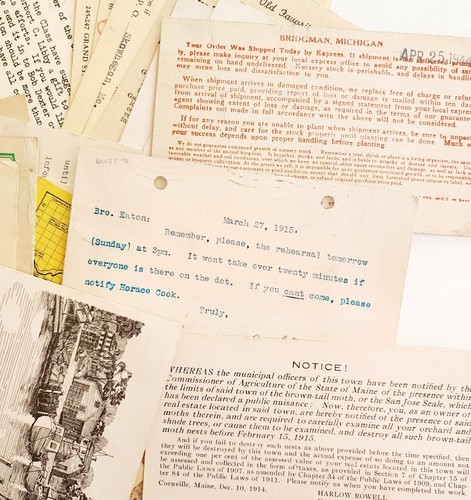 Old Favorit
245-247 GRAND S
Skowhegan,
BRIDGMAN, MICHIGAN
APR 25 194
Your Order Was Shipped Today by Express. If shipment is
ly, please make inquiry at your local express office to avoid any possibility of
remaining on hand undelivered. Nursery stock is perishable, and delays in handling
may mean loss and dissatisfaction to you.
When shipment arrives in damaged condition, we replace free of charge or refund
purchase price paid, providing report of loss or damage is mailed within ten days
from arrival of shipment, accompanied by a signed statement from your local express
agent showing extent of loss or damage, as required in the terms of our guarantee.
Complaints not made in full accordance with the above will not be considered.
If for any reason you are unable to plant when shipment arrives, be sure to unpack
without delay, and care for the stock properly until planting can be done. Much of
your success depends upon proper handling before planting.
We do not guarantee continued growth of nursery stock.
Class have suggested to
Norbert C. Libby a
if you would
send it to Bob Dever
March 27, 1915.
Bro. Eaton:
Remember, please, the rehearsal tomorrow
(Sunday) at 3pm. It wont take over twenty minutes if
everyone is there on the dot. If you cant come, please
notify Horace Cook.
Truly,
NOTICE!
WHEREAS the municipal officers of this town have been notified by the
Commissioner of Agriculture of the State of Maine of the presence within
the limits of said town of the brown-tail moth, or the San Jose Scale, which
has been declared a public nuisance: Now, therefore, you, as an owner of
real estate located in said town, are hereby notified of the presence of said
moths therein, and are required to carefully examine all your orchard and
shade trees, or cause them to be examined, and destroy all such brown-tail
moth nests before February 15, 1915.
And if you fail to destroy such nests as above provided before the time specified, then
they will be destroyed by this town and the actual expense of so doing to an amount not
exceeding one per cent of the assessed value of your real estate located in this town will
be assessed and collected in the form of taxes, as provided in Section 7 of Chapter 15 of
the Public Laws of 1907, as amended by Chapter 34 of the Public Laws of 1909, and Chap-
ter 84 of the Public Laws of 1911. Please notify us when you have completed the
Cornville, Maine, Dec. 10, 1914.
HARLOW ROWELL